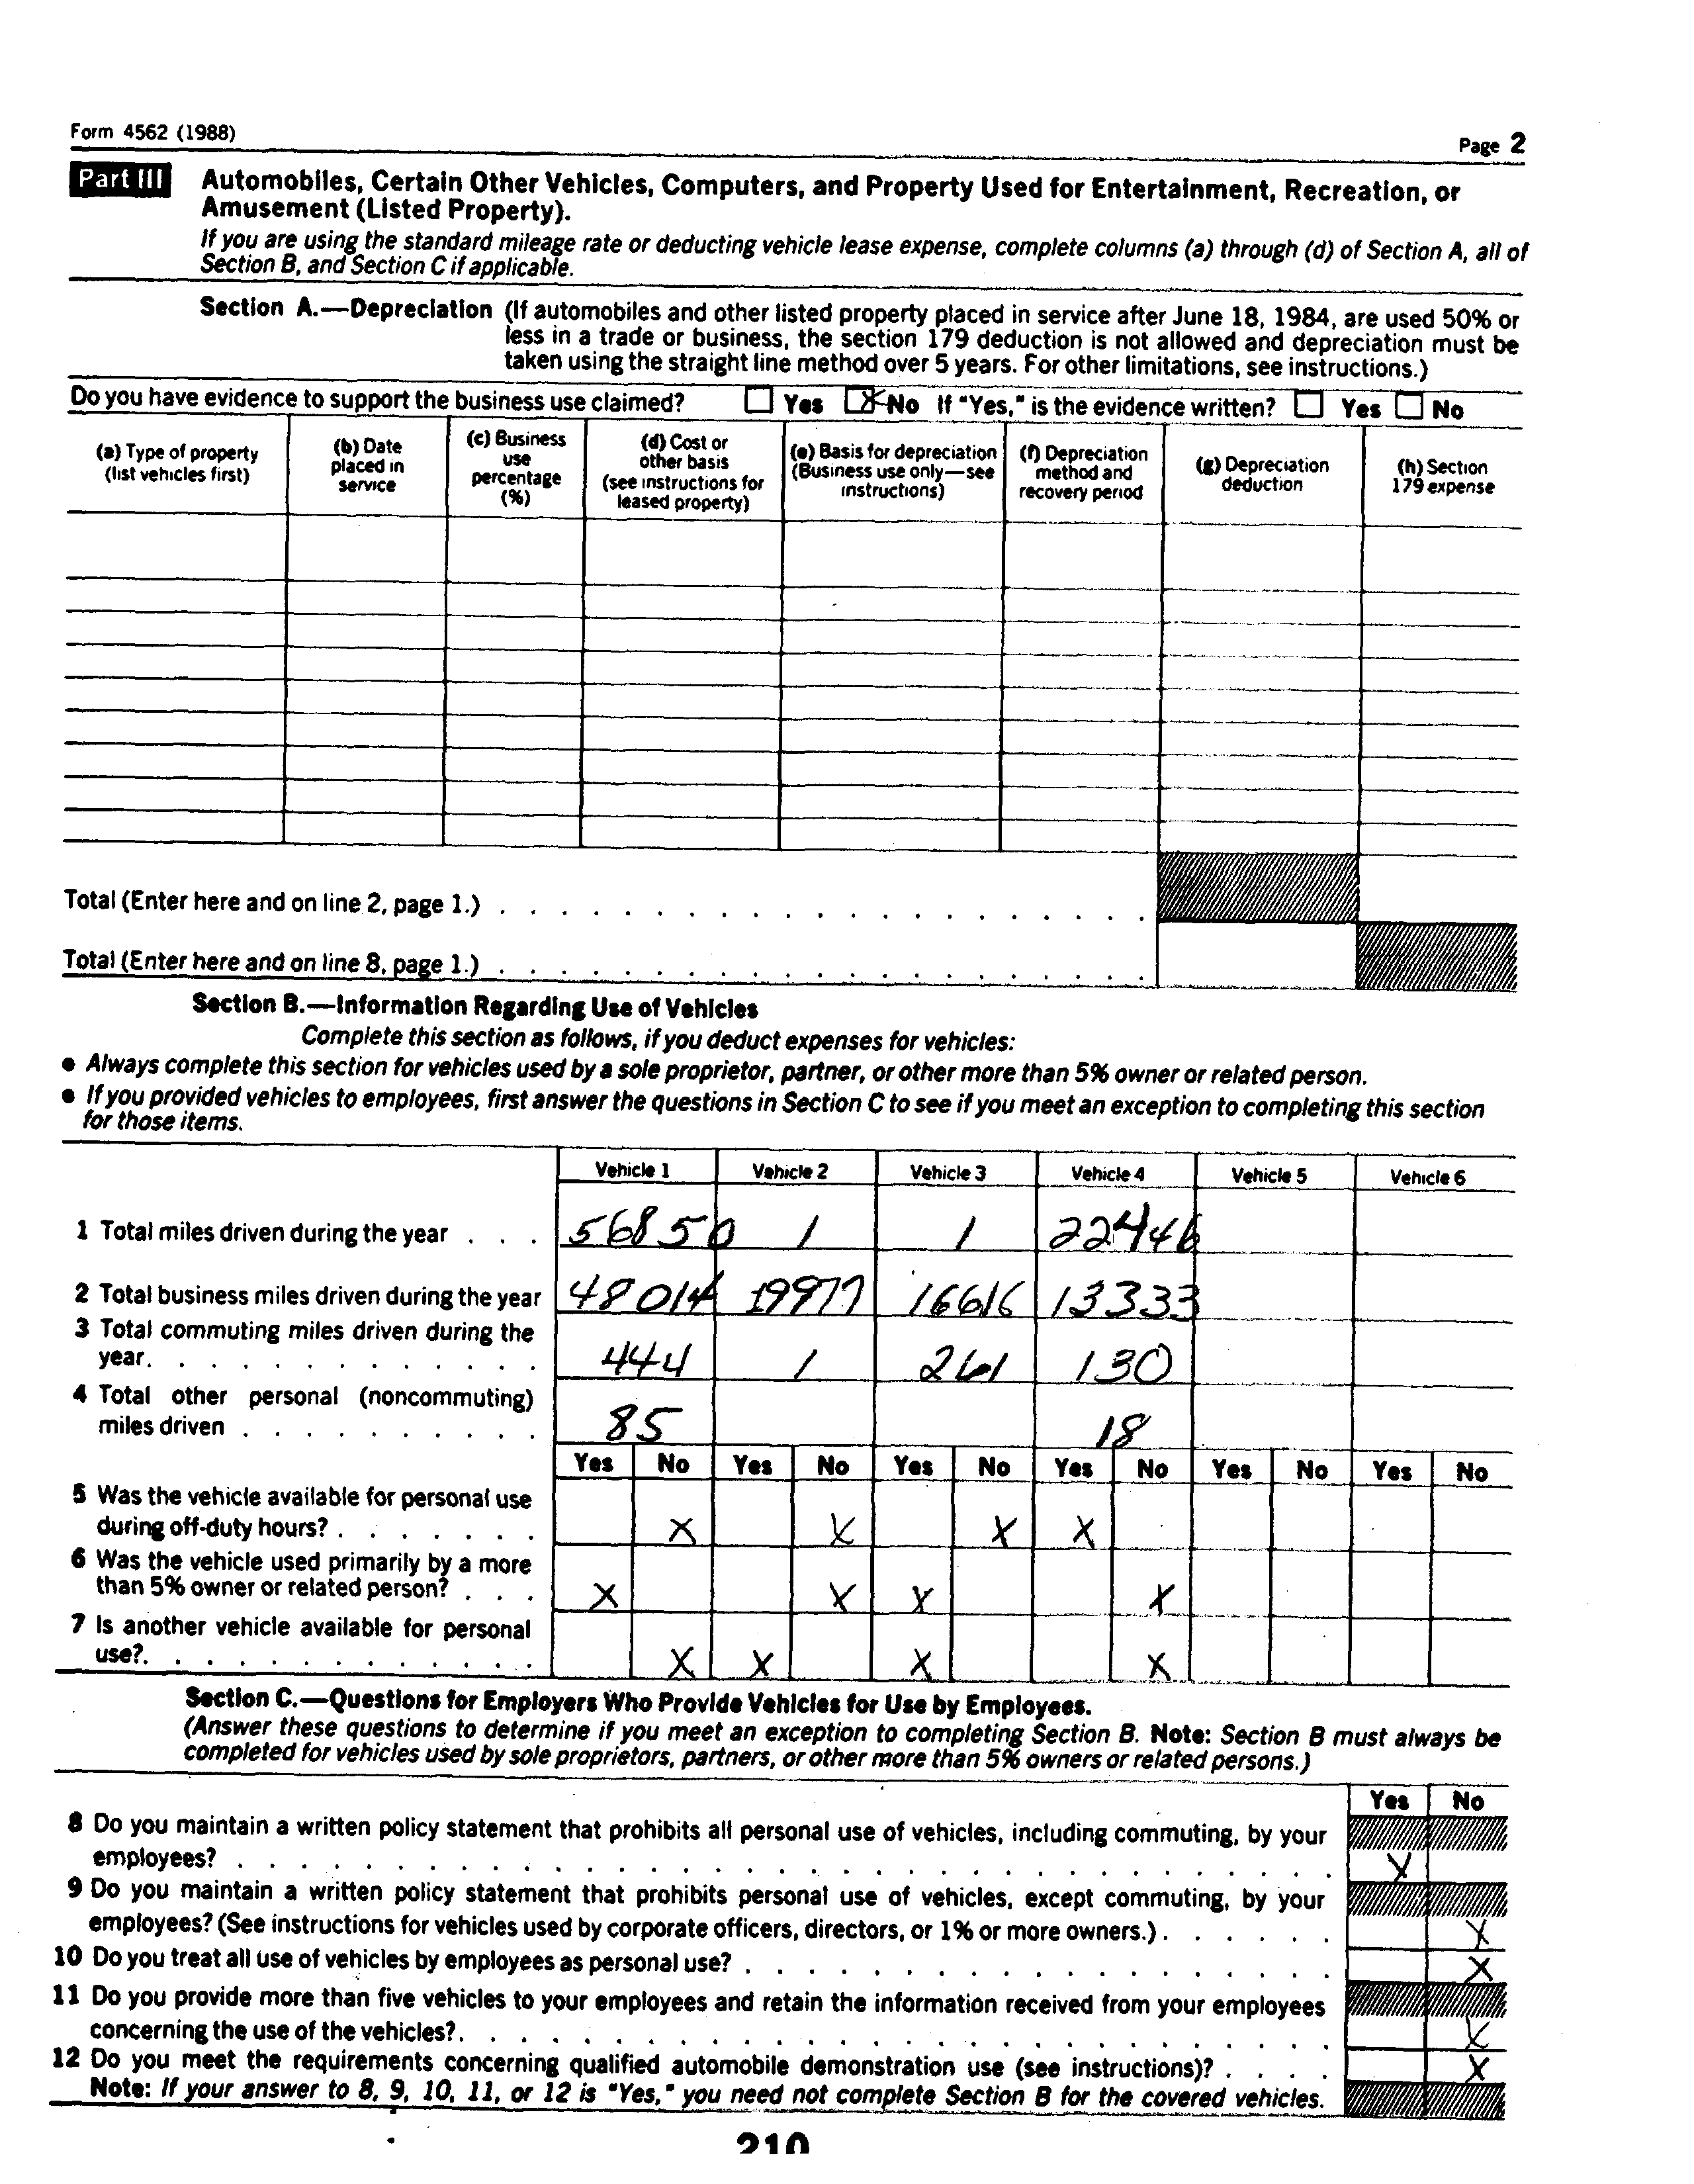 Form 4562 (1988)
Page 2
Part III
Automobiles, Certain Other Vehicles, Computers, and Property Used for Entertainment, Recreation, or
Amusement (Listed Property).
If you are using the standard mileage rate or deducting vehicle lease expense, complete columns (a) through (d) of Section A, all of
Section B, and Section C if applicable.
Section A.—Depreciation (If automobiles and other listed property placed in service after June 18, 1984, are used 50% or
less in a trade or business, the section 179 deduction is not allowed and depreciation must be
taken using the straight line method over 5 years. For other limitations, see instructions.)
Do you have evidence to support the business use claimed? Yes X No If "Yes," is the evidence written? Yes No
(a) Type of property
(list vehicles first)
(b) Date
placed in
service
(c) Business
use
percentage
(%)
(d) Cost or
other basis
(see instructions for
leased property)
(e) Basis for depreciation
(Business use only—see
instructions)
(f) Depreciation
method and
recovery period
(g) Depreciation
deduction
(h) Section
179 expense
Total (Enter here and on line 2, page 1.) . . . . . . . . . . . . . . . . . . . . .
Total (Enter here and on line 8, page 1.) . . . . . . . . . . . . . . . . . . . . .
Section B.—Information Regarding Use of Vehicles
Complete this section as follows, if you deduct expenses for vehicles:
● Always complete this section for vehicles used by a sole proprietor, partner, or other more than 5% owner or related person.
● If you provided vehicles to employees, first answer the questions in Section C to see if you meet an exception to completing this section
for those items.
Vehicle 1 Vehicle 2 Vehicle 3 Vehicle 4 Vehicle 5 Vehicle 6
1 Total miles driven during the year . . . 56850 1 1 22446
2 Total business miles driven during the year 48014 19977 16616 13333
3 Total commuting miles driven during the
year. . . . . . . . . . . . . 444 1 261 130
4 Total other personal (noncommuting)
miles driven . . . . . . . . . . 85 18
Yes No Yes No Yes No Yes No Yes No Yes No
5 Was the vehicle available for personal use
during off-duty hours? . . . . . . . X X X X
6 Was the vehicle used primarily by a more
than 5% owner or related person? . . . X X X X
7 Is another vehicle available for personal
use?. . . . . . . . . . . . . X X X X
Section C.—Questions for Employers Who Provide Vehicles for Use by Employees.
(Answer these questions to determine if you meet an exception to completing Section B. Note: Section B must always be
completed for vehicles used by sole proprietors, partners, or other more than 5% owners or related persons.)
Yes No
8 Do you maintain a written policy statement that prohibits all personal use of vehicles, including commuting, by your
employees? . . . . . . . . . . . . . . . . . . . . . . . . . . . . . . . . . . . X
9 Do you maintain a written policy statement that prohibits personal use of vehicles, except commuting, by your
employees? (See instructions for vehicles used by corporate officers, directors, or 1% or more owners.) . . . . . . X
10 Do you treat all use of vehicles by employees as personal use? . . . . . . . . . . . . . . . . . . . X
11 Do you provide more than five vehicles to your employees and retain the information received from your employees
concerning the use of the vehicles?. . . . . . . . . . . . . . . . . . . . . . . . . . . . X
12 Do you meet the requirements concerning qualified automobile demonstration use (see instructions)? . . . . X
Note: If your answer to 8, 9, 10, 11, or 12 is "Yes," you need not complete Section B for the covered vehicles.
210